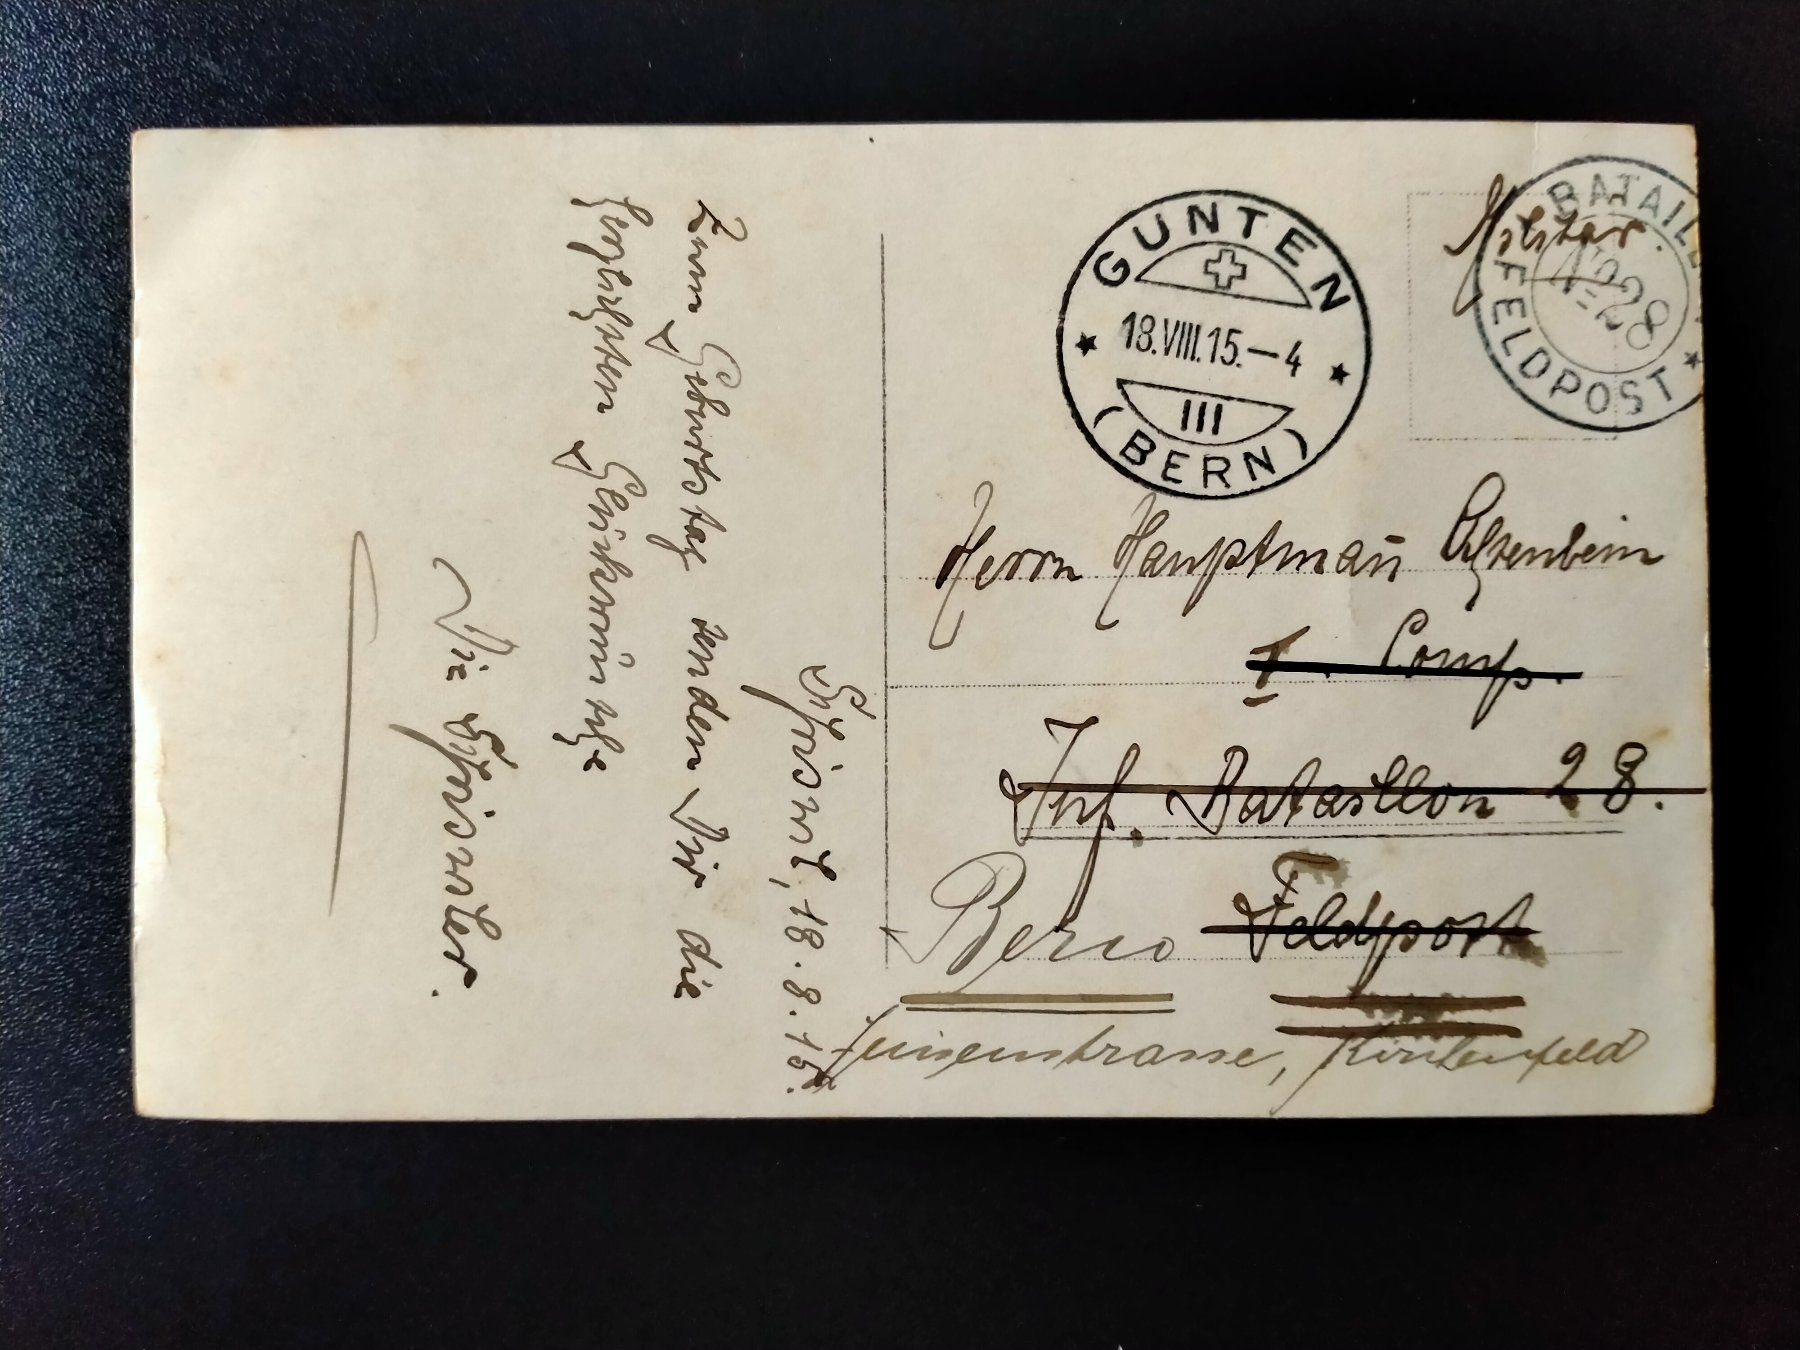 Militär.
BATAILL
Nº 28
FELDPOST
GUNTEN
18.VIII.15.–4
III
(BERN)
Herrn Hauptman̄ Ochsenbein
I. Comp.
Inf. Bataillon 28.
Bern Feldpost
Luisenstrasse, Kirchenfeld
Sigriswil, 18.8.15.
Zum Geburtstag senden Dir die
herzlichsten Glückwünsche
Die Sigriswiler.